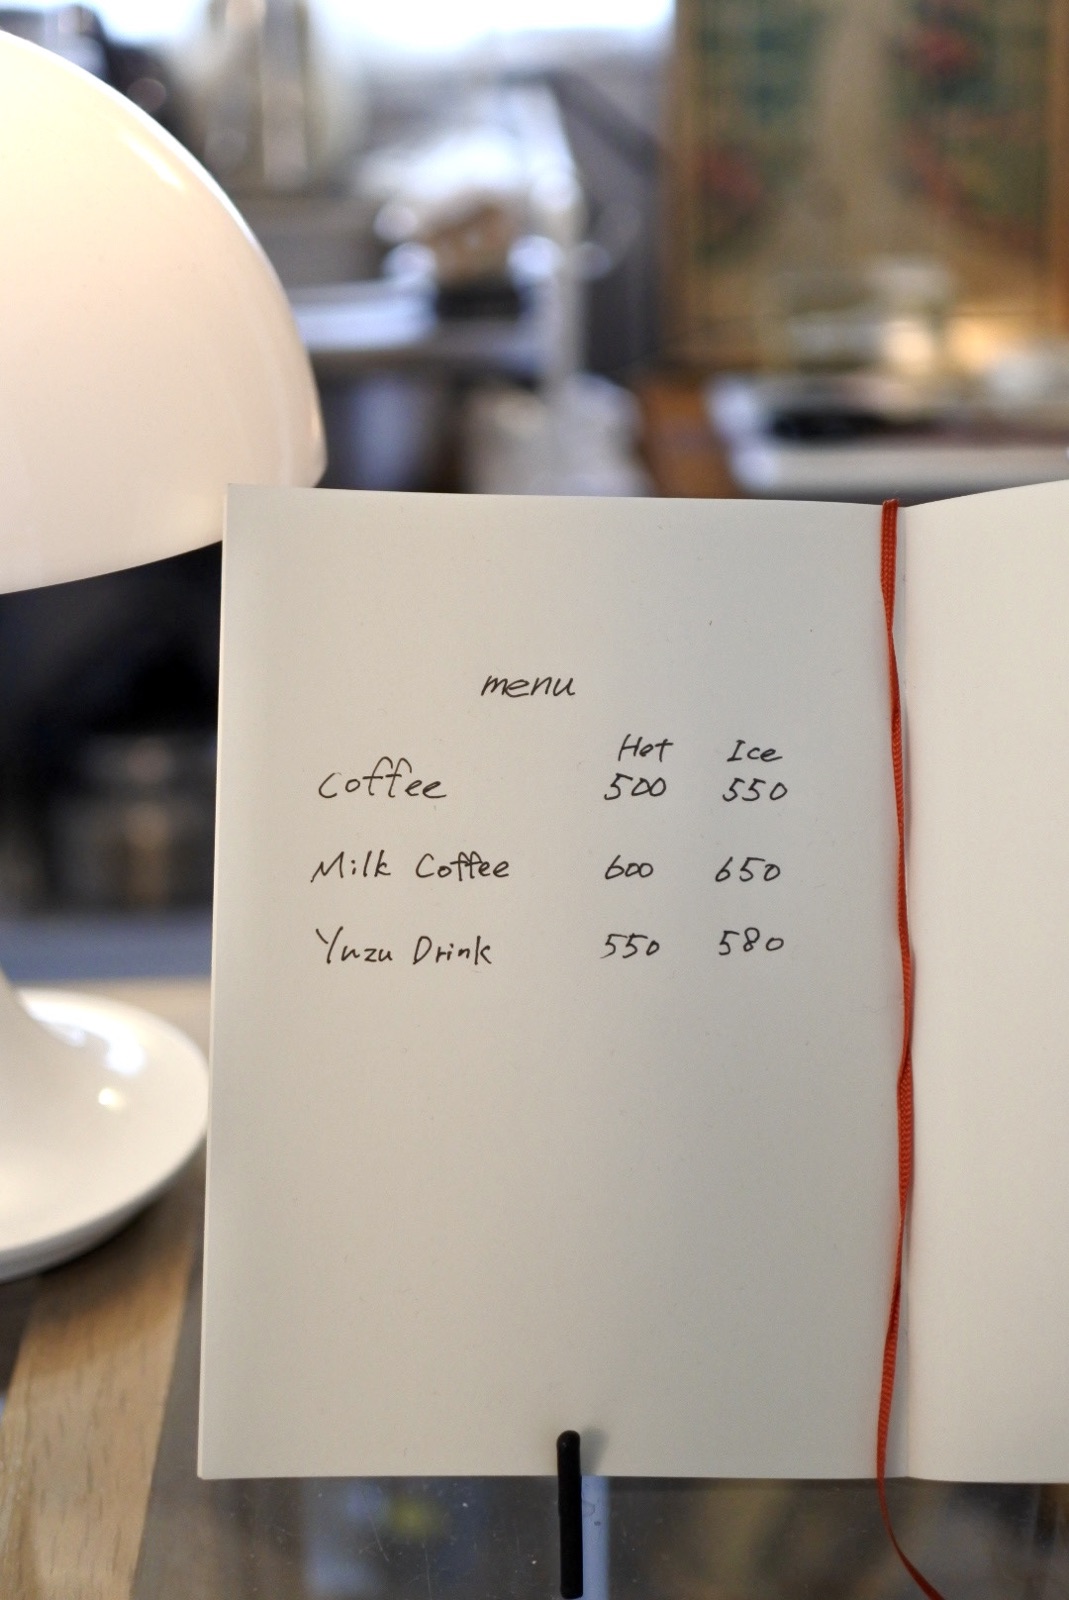 menu
Hot Ice
Coffee 500 550
Milk Coffee 600 650
Yuzu Drink 550 580